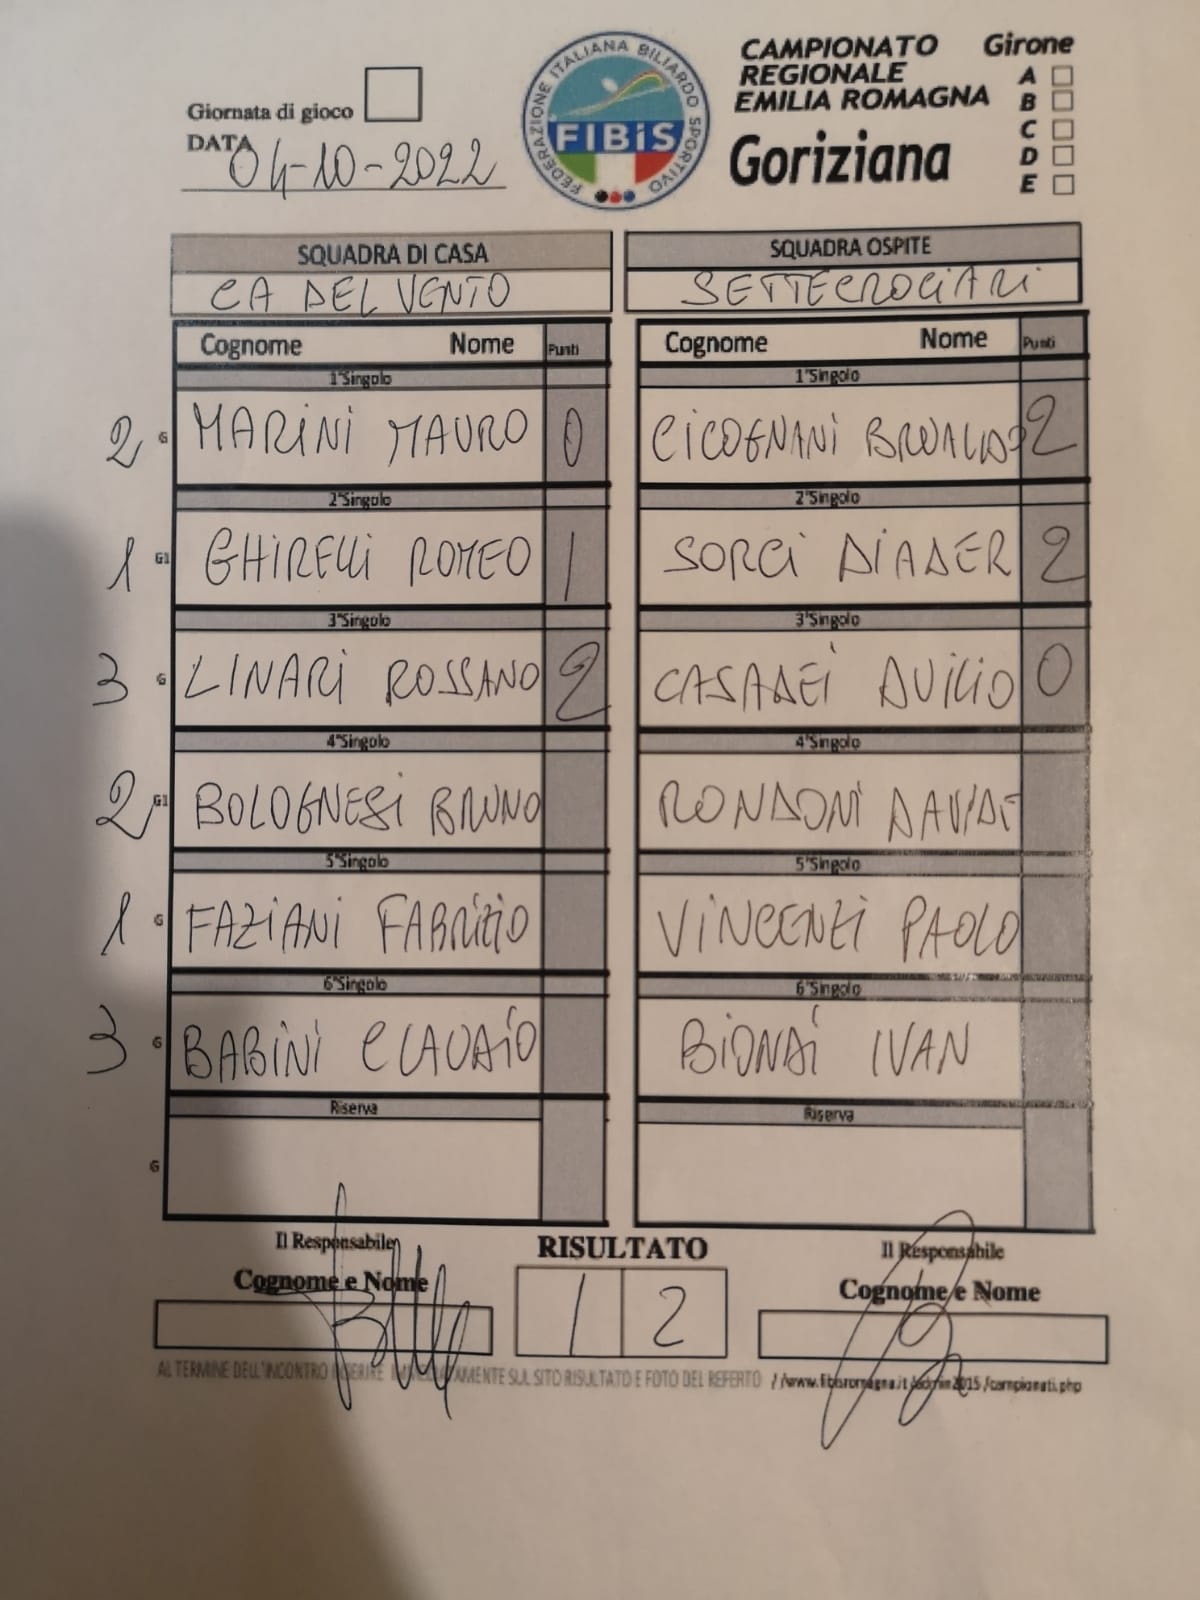 Giornata di gioco
DATA 04-10-2022
FEDERAZIONE ITALIANA BILIARDO SPORTIVO
FIBiS
CAMPIONATO
REGIONALE
EMILIA ROMAGNA
Goriziana
Girone
A
B
C
D
E
SQUADRA DI CASA SQUADRA OSPITE
CA DEL VENTO SETTECROCIARI
Cognome Nome Punti Cognome Nome Punti
1°Singolo 1°Singolo
2 G MARINI MAURO 0 CICOGNANI 2
2°Singolo 2°Singolo
1 G1 GHIRELLI ROMEO 1 SORCI DIADER 2
3°Singolo 3°Singolo
3 G LINARI ROSSANO 2 CASADEI DUILIO 0
4°Singolo 4°Singolo
2 G1 BOLOGNESI BRUNO RONDONI DAVIDE
5°Singolo 5°Singolo
1 G FAZIANI FABRIZIO VINCENZI PAOLO
6°Singolo 6°Singolo
3 G BABINI CLAUDIO BIONDI IVAN
Riserva Riserva
G
Il Responsabile RISULTATO Il Responsabile
Cognome e Nome Cognome e Nome
1 2
AL TERMINE DELL'INCONTRO INSERIRE IMMEDIATAMENTE SUL SITO RISULTATO E FOTO DEL REFERTO //www.fibisromagna.it/admin2015/campionati.php